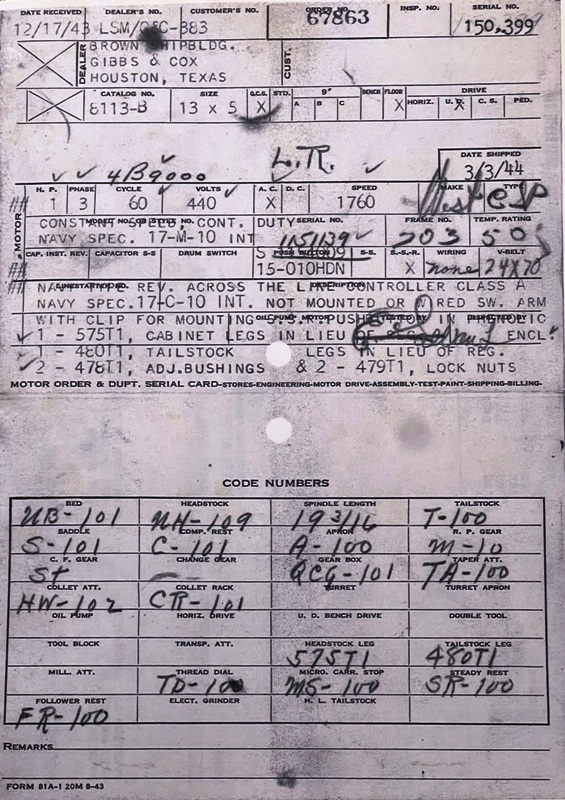 DATE RECEIVED DEALER'S NO. CUSTOMER'S NO. ORDER NO. INSP. NO. SERIAL NO.
12/17/43 LSM/ 383 67863 150,399
DEALER BROWN SHIPBLDG. CUST.
GIBBS & COX
HOUSTON, TEXAS
CATALOG NO. SIZE Q.C.G. STD. 9" BENCH FLOOR DRIVE
8113-B 13 x 5 X A B C X HORIZ. U. X C. S. PED.
4139000 L.R. DATE SHIPPED
3/3/44
H. P. PHASE CYCLE VOLTS A. C. D. C. SPEED MAKE TYPE
## 1 3 60 440 X 1760 CSP
MOTOR CONSTANT SPEED, CONT. DUTY SERIAL NO. FRAME NO. TEMP. RATING
NAVY SPEC. 17-M-10 INT 203 50
CAP. INST. REV. CAPACITOR S-S DRUM SWITCH PUSH BUTTON S-S. S.-S.-R. WIRING V-BELT
## 15-010HDN X none 24X70
## REV. ACROSS THE CONTROLLER CLASS A
NAVY SPEC.17-C-10 INT. NOT MOUNTED OR WIRED SW. ARM
WITH CLIP FOR MOUNTING
1 - 575T1, CABINET LEGS IN LIEU ENCL.
1 - 480T1, TAILSTOCK LEGS IN LIEU OF REG.
2 - 478T1, ADJ.BUSHINGS & 2 - 479T1, LOCK NUTS
MOTOR ORDER & DUPT. SERIAL CARD-STORES-ENGINEERING-MOTOR DRIVE-ASSEMBLY-TEST-PAINT-SHIPPING-BILLING-
CODE NUMBERS
BED HEADSTOCK SPINDLE LENGTH TAILSTOCK
UB-101 NH-109 19 3/16 T-100
SADDLE COMP. REST APRON R. P. GEAR
S-101 C-101 A-100 M-10
C. F. GEAR CHANGE GEAR GEAR BOX TAPER ATT.
St QCG-101 TA-100
COLLET ATT. COLLET RACK TURRET TURRET APRON
HW-102 CR-101
OIL PUMP HORIZ. DRIVE U. D. BENCH DRIVE DOUBLE TOOL
TOOL BLOCK TRANSP. ATT. HEADSTOCK LEG TAILSTOCK LEG
575T1 480T1
MILL. ATT. THREAD DIAL MICRO. CARR. STOP STEADY REST
TD-100 MS-100 SR-100
FOLLOWER REST ELECT. GRINDER H. L. TAILSTOCK
FR-100
REMARKS
FORM 81A-1 20M 8-43